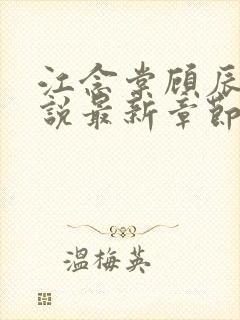 江念棠顾辰
說最新章節
温梅英